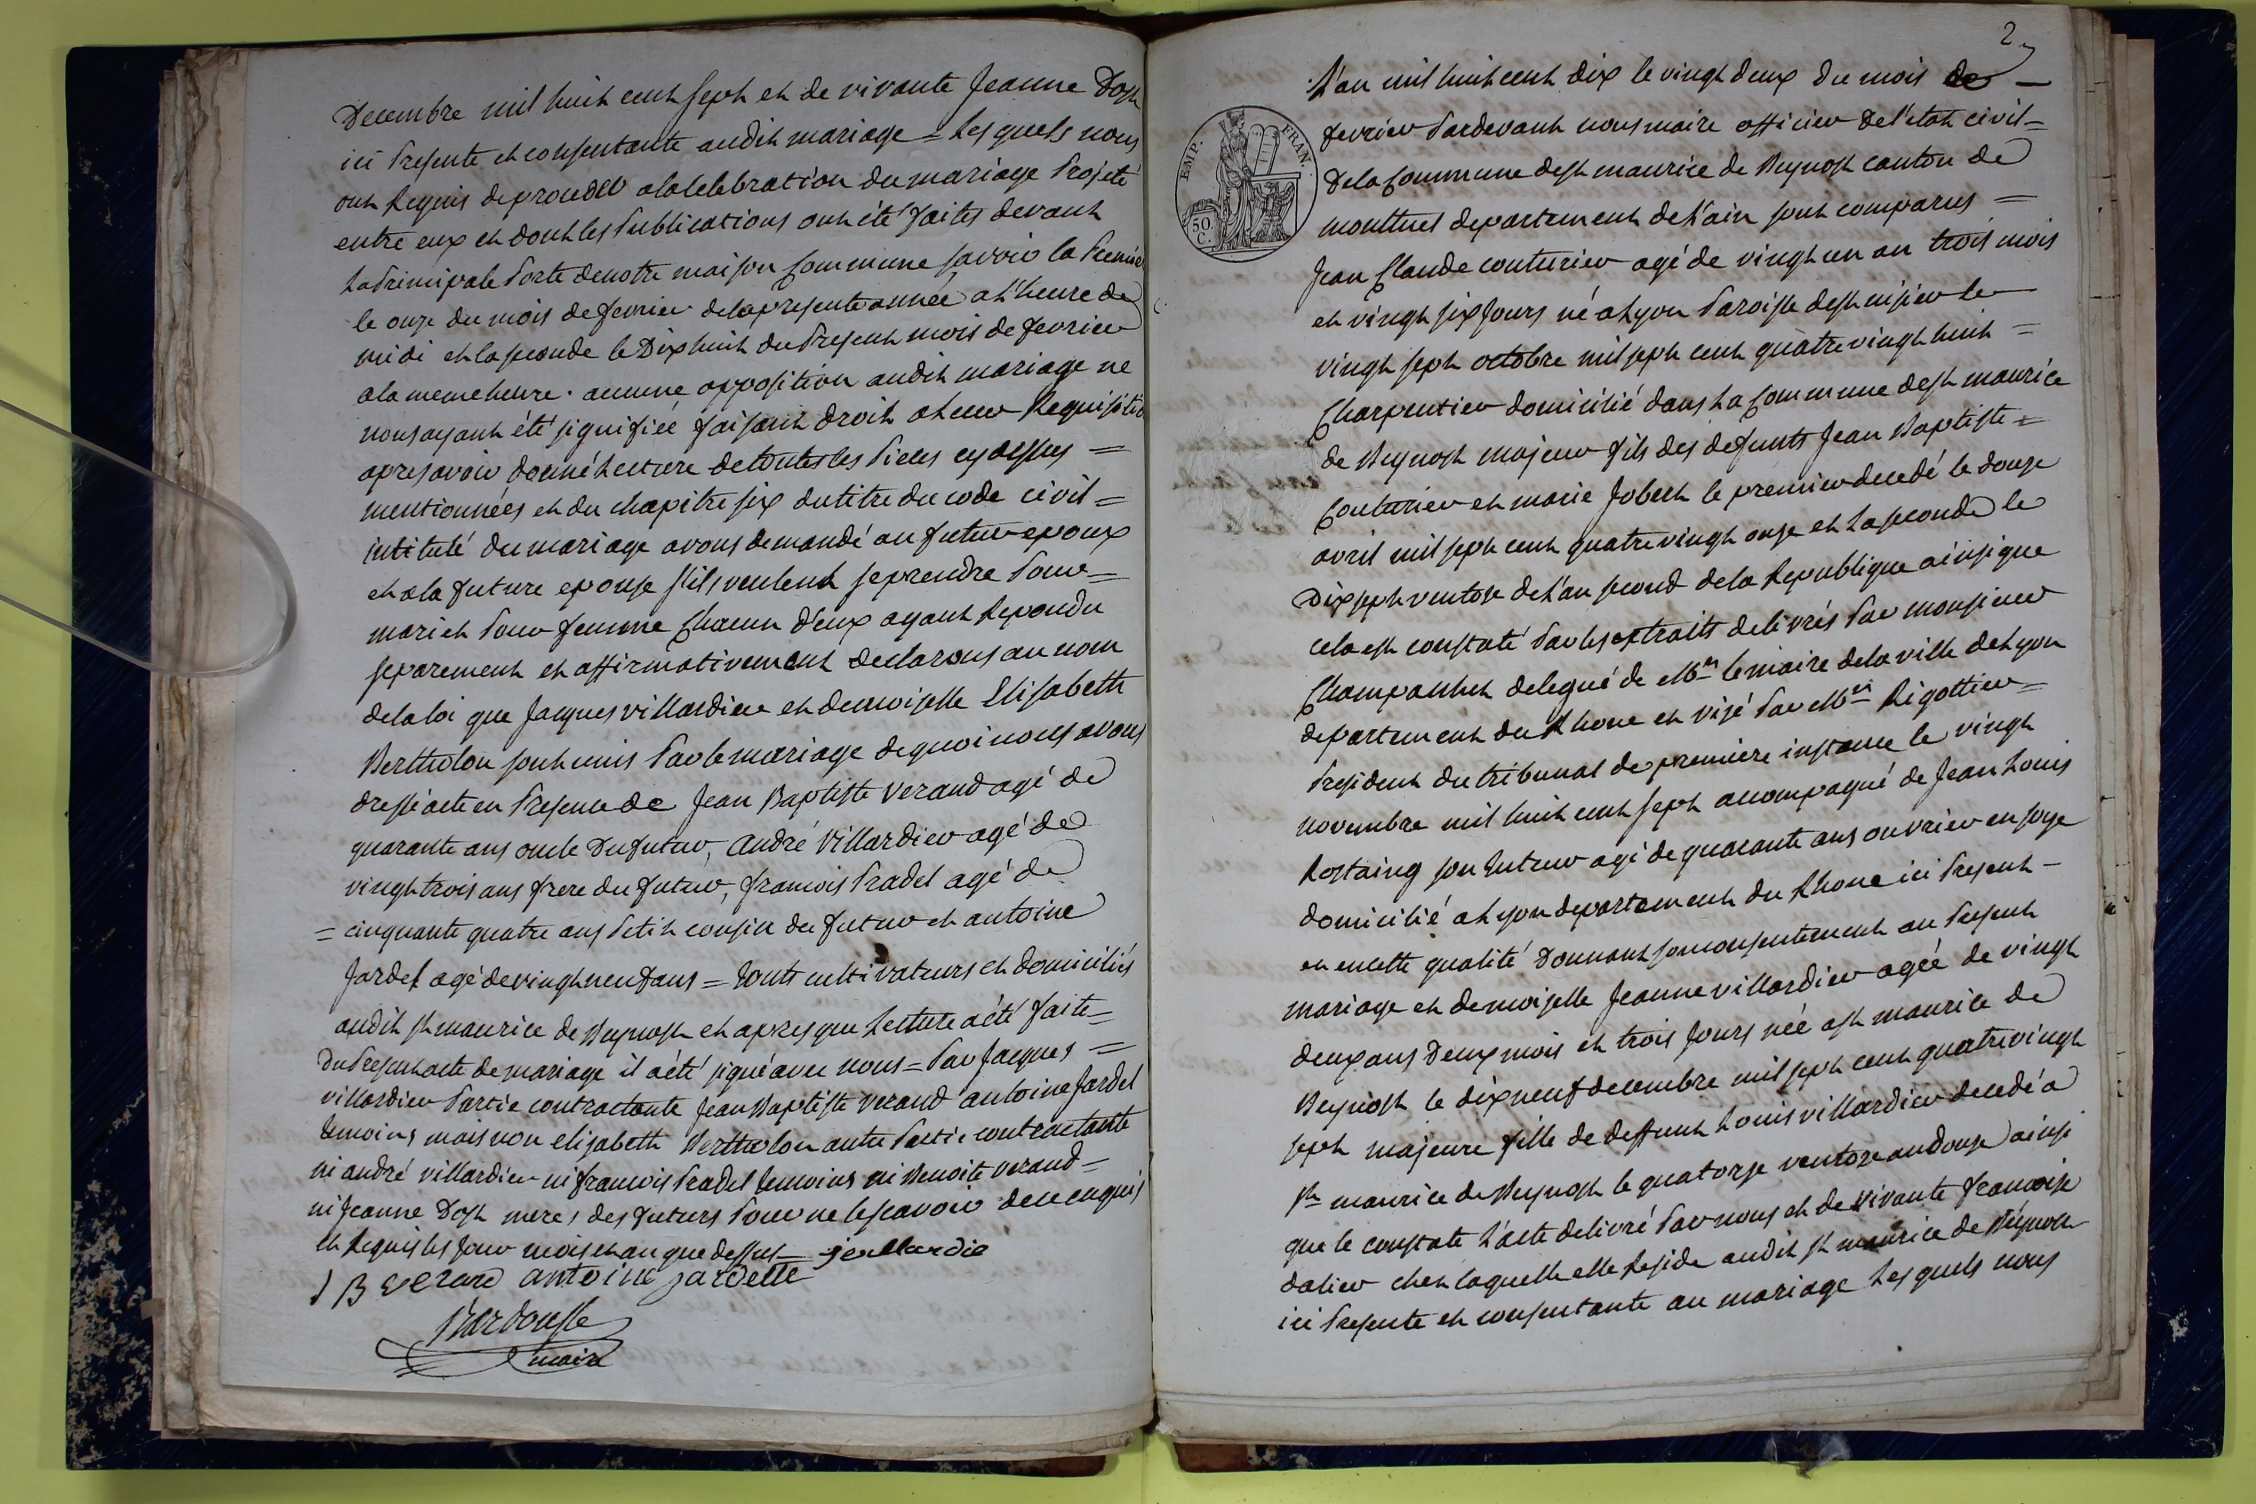 Decembre mil huit cent sept et de vivante Jeanne Dost
ici Presente et consentante audit mariage = Les quels nous
ont Requis de proceder a la Celebration du mariage Projeté
entre eux et dont les Publications ont été faites devant
La Principale Porte de notre maison Commune savoir la Premiere
le onze du mois de fevrier de la presente année a L'heure de
midi et la seconde le Dix huit du Present mois de fevrier
a la meme heure. aucune opposition audit mariage ne
nous ayant été signifiée faisant droit a Leur Requisition
apres avoir donné Lecture de toutes les Pieces cy dessus =
mentionnées et du chapitre six du titre du code civil =
intitulé du mariage avons demandé au futur epoux
et a la future epouse s'ils veulent se prendre Pour =
mari et Pour femme Chacun d'eux ayant Repondu
separement et affirmativement declarons au nom
de la loi que Jacques villardier et demoiselle Elisabeth
Bertholon sont unis Par le mariage de quoi nous avons
dressé acte en Presence de Jean Baptiste verand agé de
quarante ans oncle Du futur, André Villardier agé de
vingt trois ans frere du futur, francois Pradel agé de
= cinquante quatre ans Petit cousin du futur et antoine
Jardel agé de vingt neuf ans = touts cultivateurs et domiciliés
audit st maurice de Beynost et apres que Lecture a été faite =
Du Present acte de mariage il a été signé avec nous = Par Jacques =
villardier Partie contractante Jean Baptiste verand antoine Jardel
temoins mais non elisabeth Bertholon autre Partie contractante
ni andré villardier ni francois Pradel temoins ni Benoite verand =
ni Jeanne Dost meres des futurs Pour ne le scavoir de ce enquis
et Requis les Jour mois et an que dessus = j villardie
J B verand antoine jardelle
maire
2
L'an mil huit cent dix le vingt deux du mois de =
fevrier Pardevant nous maire officier de l'etat civil =
De la Commune de st maurice de Beynost canton de
montluel departement de L'ain sont comparus =
EMP. FRAN.
50 C.
Jean Claude couturier agé de vingt un an trois mois
et vingt six Jours né a Lyon Paroisse de st nizier le
vingt sept octobre mil sept cent quatre vingt huit =
Charpentier domicilié dans La Commune de st maurice
de Beynost majeur fils des defunts Jean Baptiste =
Couturier et marie Jobert le premier decedé le douze
avril mil sept cent quatre vingt onze et La seconde le
Dix sept ventose de L'an second de la Republique ainsi que
cela est constaté Par les extraits delivrés Par monsieur
Champanhet delegué de Mr le maire de la ville de Lyon
departement du Rhone et visé Par Mr Rigottier =
President du tribunal de premiere instance le vingt
novembre mil huit cent sept accompagné de Jean Louis
Rostaing son tuteur agé de quarante ans ouvrier en soye
domicilié a Lyon departement du Rhone ici Present =
et en cette qualité Donnant son consentement au Present
mariage et demoiselle Jeanne villardier agée de vingt
deux ans Deux mois et trois Jours née a st maurice de
Beynost le dix neuf decembre mil sept cent quatre vingt
sept majeure fille de deffunt Louis villardier decedé a
st maurice de Beynost le quatorze ventose an douze ainsi
que le constate L'acte delivré Par nous et de vivante francoise
dalier chez laquelle elle Reside audit st maurice de Beynost
ici Presente et consentante au mariage Les quels nous